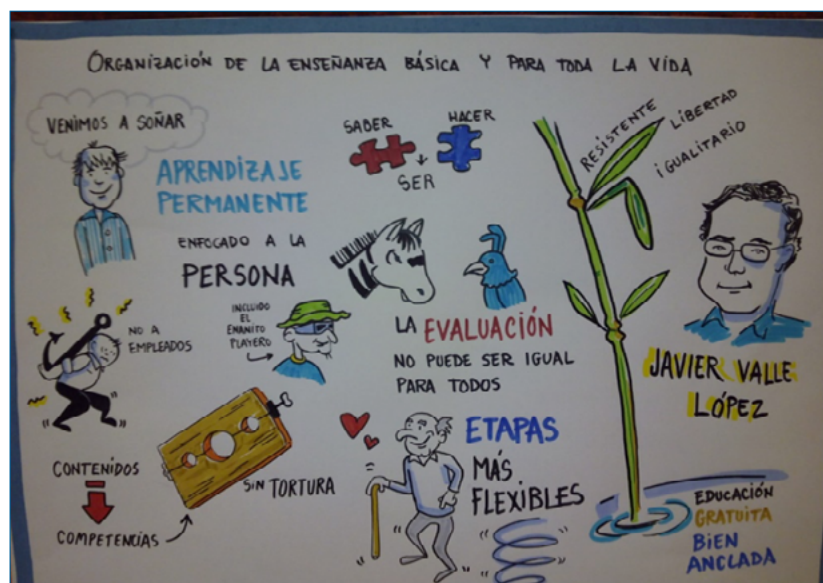 ORGANIZACIÓN DE LA ENSEÑANZA BÁSICA Y PARA TODA LA VIDA
VENIMOS A SOÑAR
APRENDIZAJE
PERMANENTE
ENFOCADO A LA
PERSONA
INCLUIDO
EL
ENANITO
PLAYERO
NO A
EMPLEADOS
CONTENIDOS
COMPETENCIAS
SIN TORTURA
SABER
HACER
SER
LA EVALUACIÓN
NO PUEDE SER IGUAL
PARA TODOS
ETAPAS
MÁS
FLEXIBLES
RESISTENTE
LIBERTAD
IGUALITARIO
JAVIER VALLE
LÓPEZ
EDUCACIÓN
GRATUITA
BIEN
ANCLADA